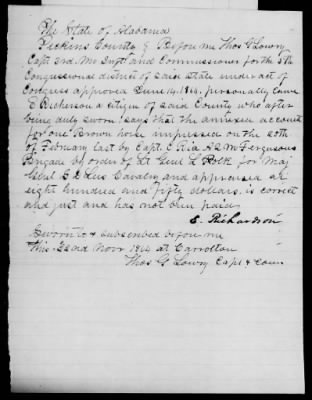 The State of Alabama
Pickens County } Before me Thos G Lowry
Capt and Commissioner for the 5th
Congressional district of said state under act of
Congress approved June 14. 1864. personally came
E Richerson a citizen of said County who after
being duly sworn says that the annexed account
for one Brown horse impressed on the 20th
of February last by Capt. C Ria A Q M Fergusons
Brigade by order of Lt Genl L Polk for Maj
Genl S D Lees Cavalry and appraised at
eight hundred and fifty dollars. is correct
and just and has not been paid
E. Richardson
Sworn to & subscribed before me
This 22nd Novr 1864 at Carrollton
Thos G Lowry Capt & Com